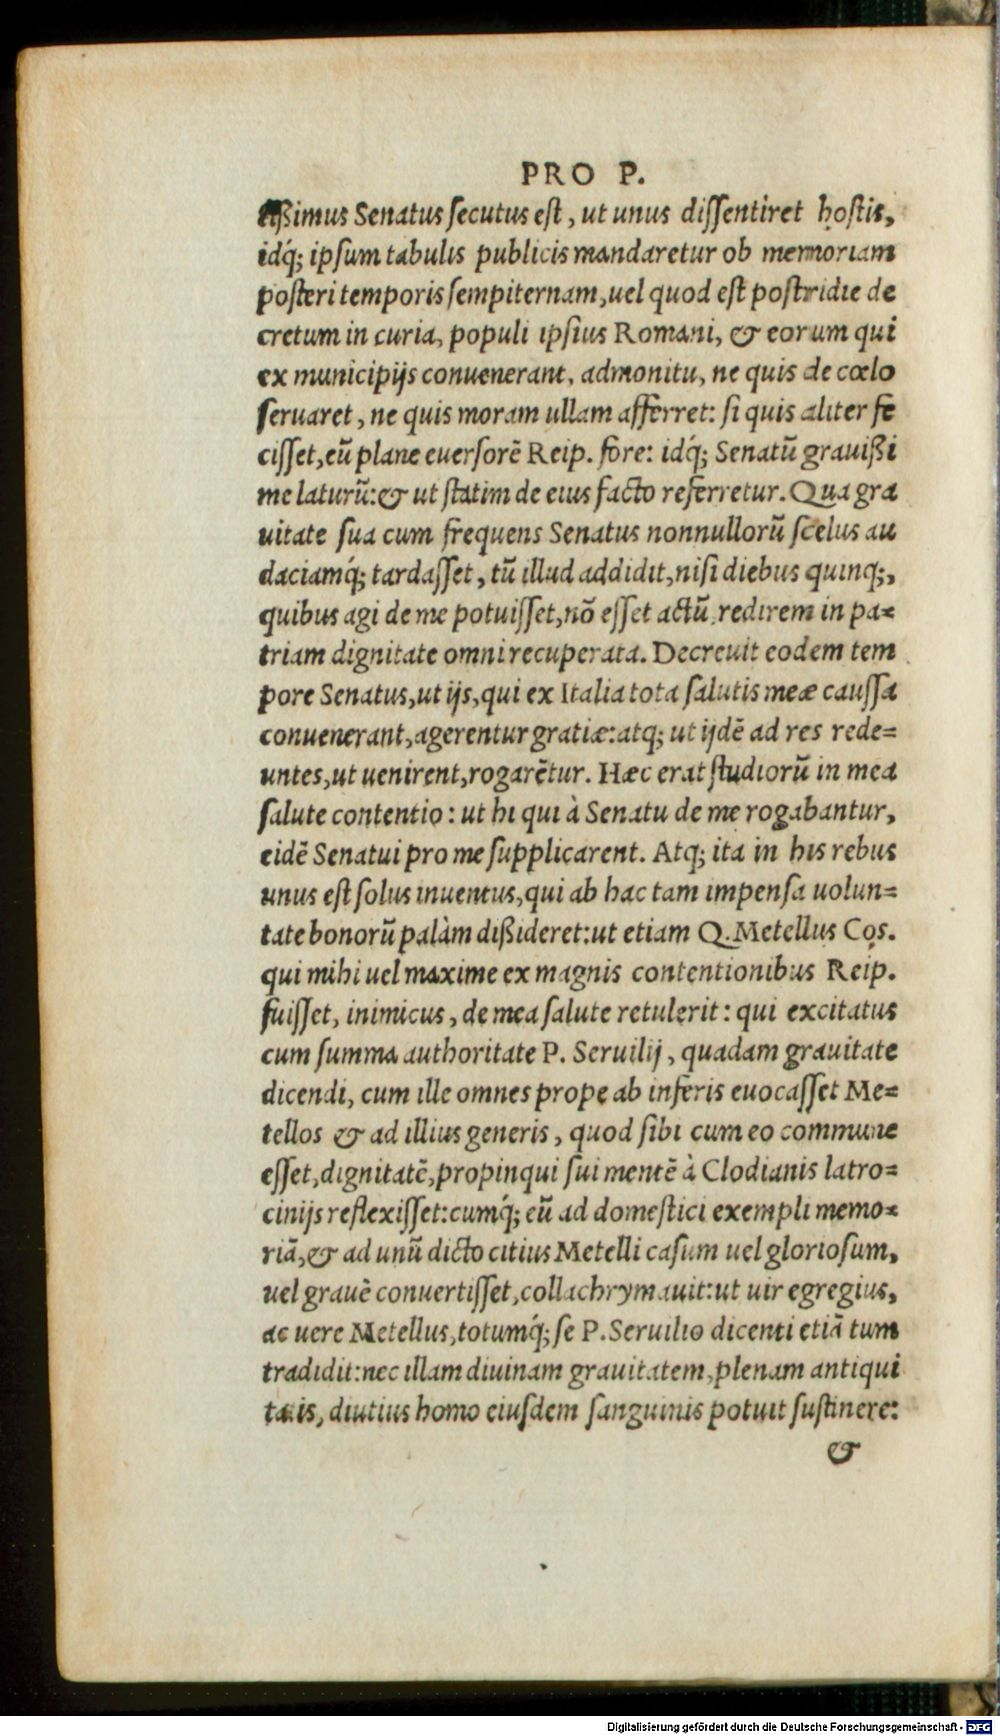 PRO P.
tißimus Senatus ſecutus eſt, ut unus diſſentiret hoſtis,
idq́; ipſum tabulis publicis mandaretur ob memoriam
poſteri temporis ſempiternam, uel quod eſt poſtridie de
cretum in curia, populi ipſius Romani, & eorum qui
ex municipijs conuenerant, admonitu, ne quis de cœlo
ſeruaret, ne quis moram ullam afferret: ſi quis aliter fe
ciſſet, eũ plane euerſorẽ Reip. fore: idq́; Senatũ grauißi
me laturũ: & ut ſtatim de eius facto referretur. Qua gra
uitate ſua cum frequens Senatus nonnullorũ ſcelus au
daciamq́; tardaſſet, tũ illud addidit, niſi diebus quinq;,
quibus agi de me potuiſſet, nõ eſſet actũ, redirem in pa=
triam dignitate omni recuperata. Decreuit eodem tem
pore Senatus, ut ijs, qui ex Italia tota ſalutis meæ cauſſa
conuenerant, agerentur gratiæ: atq; ut ijdẽ ad res rede=
untes, ut uenirent, rogarẽtur. Hæc erat ſtudiorũ in mea
ſalute contentio: ut hi qui à Senatu de me rogabantur,
eidẽ Senatui pro me ſupplicarent. Atq; ita in his rebus
unus eſt ſolus inuentus, qui ab hac tam impenſa uolun=
tate bonorũ palàm dißideret: ut etiam Q. Metellus Coſ.
qui mihi uel maxime ex magnis contentionibus Reip.
fuiſſet, inimicus, de mea ſalute retulerit: qui excitatus
cum ſumma authoritate P. Seruilij, quadam grauitate
dicendi, cum ille omnes prope ab inferis euocaſſet Me=
tellos & ad illius generis, quod ſibi cum eo commune
eſſet, dignitatẽ, propinqui ſui mentẽ à Clodianis latro=
cinijs reflexiſſet: cumq́; eũ ad domeſtici exempli memo=
riã, & ad unũ dicto citius Metelli caſum uel glorioſum,
uel grauẽ conuertiſſet, collachrymauit: ut uir egregius,
ac uere Metellus, totumq́; ſe P. Seruilio dicenti etiã tum
tradidit: nec illam diuinam grauitatem, plenam antiqui
tatis, diutius homo eiuſdem ſanguinis potuit ſuſtinere:
&
Digitalisierung gefördert durch die Deutsche Forschungsgemeinschaft - DFG